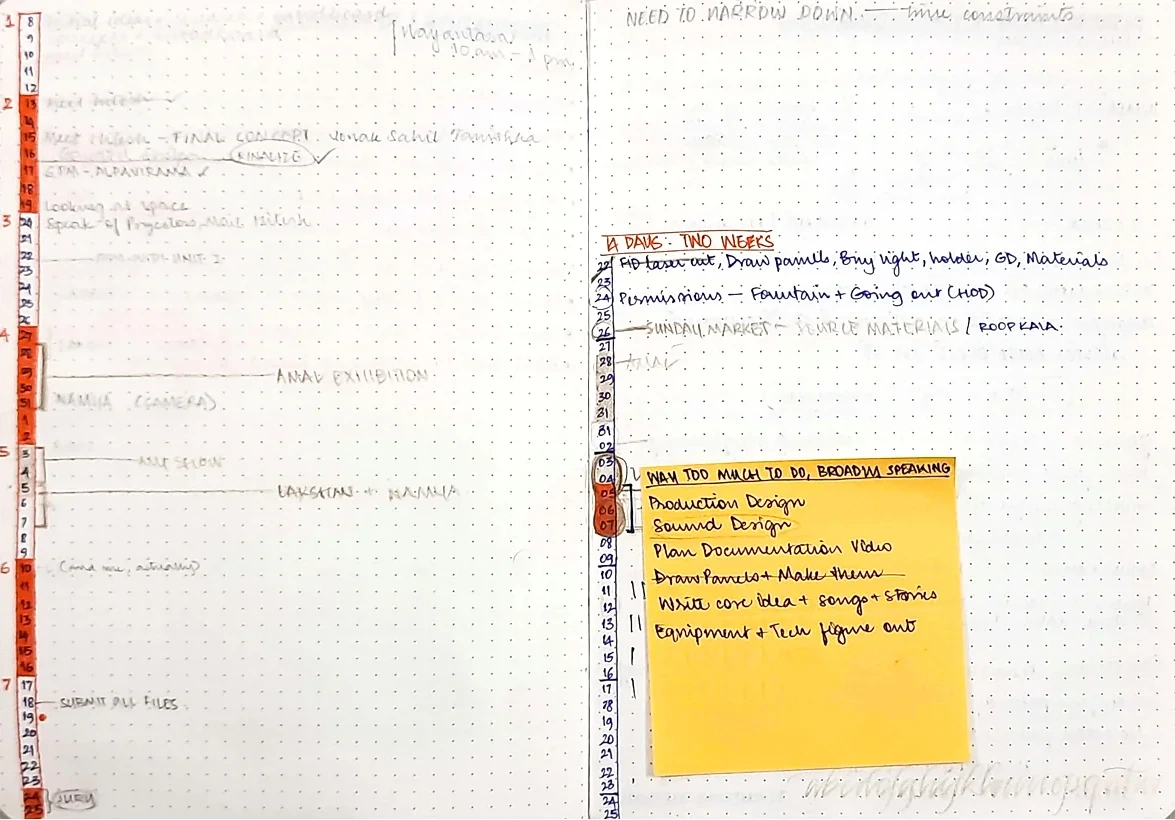 1
8
9
10
11
12
2
13
14
15
FINAL CONCEPT.
16
FINALIZE
17
18
19
Looking at space
3
20
Speak of Projectors, Mail Nitish
21
22
23
24
25
26
4
27
28
29
ANAL EXHIBITION
30
31
NAMHA (CAMERA)
1
2
5
3
4
SHOW
5
LAKSHAN + NAMHA
6
7
8
9
6
10
(and me, actually)
11
12
13
14
15
16
7
17
18
SUBMIT ALL FILES
19
20
21
22
23
24
JURY
25
10 am - 1 pm
NEED TO NARROW DOWN — time constraints
4 DAYS: TWO WEEKS
22 laser cut, Draw panels, Buy light, holder, GD, Materials
23
24 Permissions — Fountain + Going out (HOD)
25
26 SUNDAY MARKET - SOURCE MATERIALS / ROOPKALA
27
28
29
30
31
31
02
03
04
05
06
07
08
09
10
11
12
13
14
15
16
17
18
19
20
21
22
23
24
25
WAY TOO MUCH TO DO, BROADLY SPEAKING
Production Design
Sound Design
Plan Documentation Video
Draw Panels + Make them
Write core idea + songs + stories
Equipment + Tech figure out